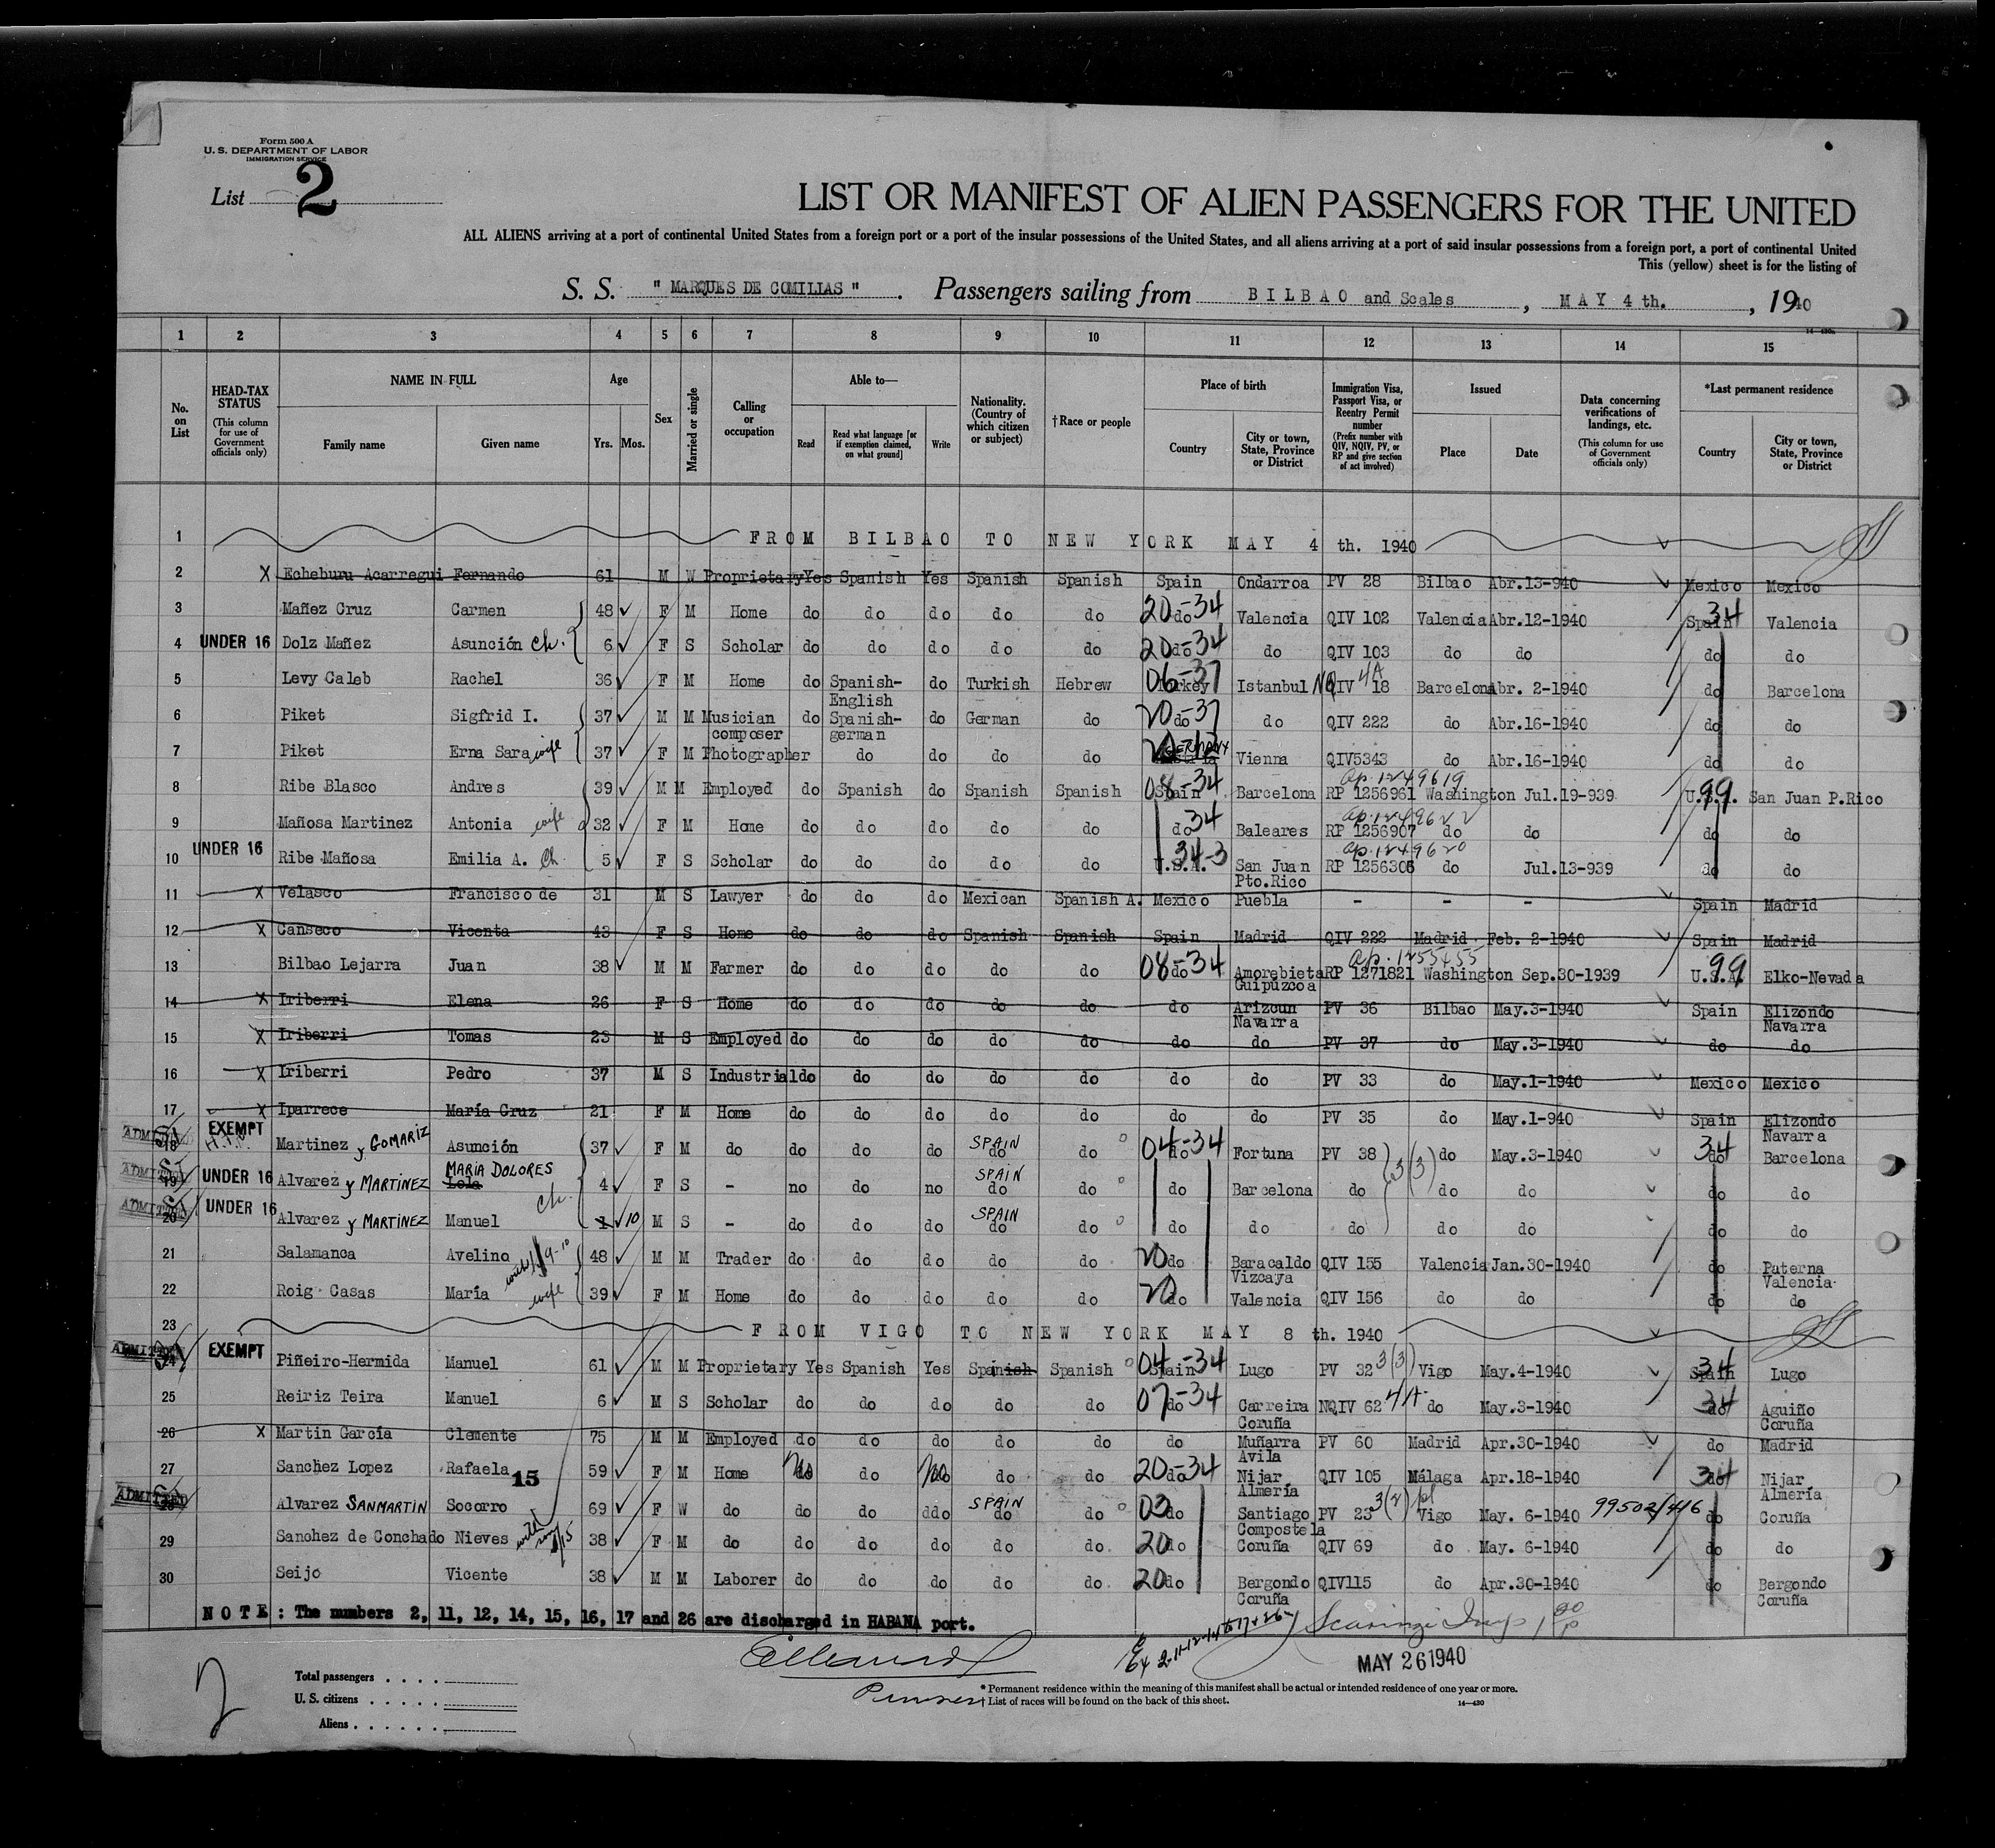 Form 500 A
U. S. DEPARTMENT OF LABOR
IMMIGRATION SERVICE
List 2
LIST OR MANIFEST OF ALIEN PASSENGERS FOR THE UNITED
ALL ALIENS arriving at a port of continental United States from a foreign port or a port of the insular possessions of the United States, and all aliens arriving at a port of said insular possessions from a foreign port, a port of continental United
This (yellow) sheet is for the listing of
S. S. " MARQUES DE COMILIAS " . Passengers sailing from BILBAO and Scales , MAY 4 th. , 1940
14—430
1 2 3 4 5 6 7 8 9 10 11 12 13 14 15
No. on List
HEAD-TAX STATUS (This column for use of Government officials only)
NAME IN FULL Family name Given name
Age Yrs. Mos.
Sex
Married or single
Calling or occupation
Able to— Read Read what language [or if exemption claimed, on what ground] Write
Nationality. (Country of which citizen or subject)
†Race or people
Place of birth Country City or town, State, Province or District
Immigration Visa, Passport Visa, or Reentry Permit number (Prefix number with QIV, NQIV, PV, or RP and give section of act involved)
Issued Place Date
Data concerning verifications of landings, etc. (This column for use of Government officials only)
*Last permanent residence Country City or town, State, Province or District
1 FROM BILBAO TO NEW YORK MAY 4 th. 1940
2 X Echeburu Acarregui Fernando 61 M W Proprietary Yes Spanish Yes Spanish Spanish Spain Ondarroa PV 28 Bilbao Abr.13-940 Mexico Mexico
3 Mañez Cruz Carmen 48 F M Home do do do do do do 20-34 Valencia QIV 102 Valencia Abr.12-1940 Spain 34 Valencia
4 UNDER 16 Dolz Mañez Asunción Ch. 6 F S Scholar do do do do do do 20-34 do QIV 103 do do do do
5 Levy Caleb Rachel 36 F M Home do Spanish-English do Turkish Hebrew Turkey 06-37 Istanbul NQIV 4A 18 Barcelona Abr. 2-1940 do Barcelona
6 Piket Sigfrid I. 37 M M Musician composer do Spanish-german do German do do 20-37 do QIV 222 do Abr.16-1940 do do
7 Piket Erna Sara wife 37 F M Photographer do do do do GERMANY Vienna QIV5343 do Abr.16-1940 do do
8 Ribe Blasco Andres 39 M M Employed do Spanish do Spanish Spanish Spain 08-34 Barcelona RP 1256961 ap. 1249619 Washington Jul.19-939 U.S.A. 99 San Juan P.Rico
9 Mañosa Martinez Antonia wife 32 F M Home do do do do do do 34 Baleares RP 1256907 ap. 1249622 do do do do
10 UNDER 16 Ribe Mañosa Emilia A. Ch. 5 F S Scholar do do do do do U.S.A. 34-3 San Juan Pto.Rico RP 1256306 ap. 1249620 do Jul.13-939 do do
11 X Velasco Francisco de 31 M S Lawyer do do do Mexican Spanish A. Mexico Puebla - - - Spain Madrid
12 X Canseco Vicenta 43 F S Home do do do Spanish Spanish Spain Madrid QIV 222 Madrid Feb. 2-1940 Spain Madrid
13 Bilbao Lejarra Juan 38 M M Farmer do do do do do do 08-34 Amorebieta Guipuzcoa RP 1271821 ap. 1255455 Washington Sep.30-1939 U.S.A. 99 Elko-Nevada
14 X Iriberri Elena 26 F S Home do do do do do do Arizcun Navarra PV 36 Bilbao May.3-1940 Spain Elizondo Navarra
15 X Iriberri Tomas 23 M S Employed do do do do do do do PV 37 do May.3-1940 do do
16 X Iriberri Pedro 37 M S Industrial do do do do do do do PV 33 do May.1-1940 Mexico Mexico
17 X Iparrece María Cruz 21 F M Home do do do do do do do PV 35 do May.1-940 Spain Elizondo Navarra
ADMITTED 18 EXEMPT Martinez y GOMARIZ Asunción 37 F M do do do do SPAIN do do do 04-34 Fortuna PV 38 3(3) do May.3-1940 do 34 Barcelona
ADMITTED 19 UNDER 16 Alvarez y MARTINEZ Lola MARIA DOLORES 4 F S - no do no SPAIN do do do Barcelona do do do do do
ADMITTED 20 UNDER 16 Alvarez y MARTINEZ Manuel ch. 1 10 M S - do do do SPAIN do do do do do do do do do
21 Salamanca Avelino 48 M M Trader do do do do do 20 do Baracaldo Vizcaya QIV 155 Valencia Jan.30-1940 do Paterna Valencia
22 Roig Casas María wife 39 F M Home do do do do do 20 do Valencia QIV 156 do do do do
23 FROM VIGO TO NEW YORK MAY 8 th. 1940
ADMITTED 24 EXEMPT Piñeiro-Hermida Manuel 61 M M Proprietary Yes Spanish Yes Spanish Spanish Spain 04-34 Lugo PV 32 3(3) Vigo May.4-1940 Spain 34 Lugo
25 Reiriz Teira Manuel 6 M S Scholar do do do do do do 07-34 Carreira Coruña NQIV 62 4A do May.3-1940 do 34 Aguiño Coruña
26 X Martin García Clemente 75 M M Employed do do do do do do Muñarra Avila PV 60 Madrid Apr.30-1940 do Madrid
27 Sanchez Lopez Rafaela 15 59 F M Home No do No do do do 20-34 Nijar Almería QIV 105 Málaga Apr.18-1940 do 34 Nijar Almería
ADMITTED 28 Alvarez SANMARTIN Socorro 69 F W do do do ddo SPAIN do do 03 do Santiago Compostela PV 23 3(2) pl Vigo May. 6-1940 99502/416 do Coruña
29 Sanchez de Conchado Nieves 38 F M do do do do do do 20 do Coruña QIV 69 do May. 6-1940 do do
30 Seijo Vicente 38 M M Laborer do do do do do 20 do Bergondo Coruña QIV115 do Apr.30-1940 do Bergondo Coruña
NOTE: The numbers 2, 11, 12, 14, 15, 16, 17 and 26 are discharged in HABANA port.
MAY 26 1940
2
Total passengers . . . .
U. S. citizens . . . . .
Aliens . . . . . .
Purser
* Permanent residence within the meaning of this manifest shall be actual or intended residence of one year or more.
† List of races will be found on the back of this sheet.
14—430